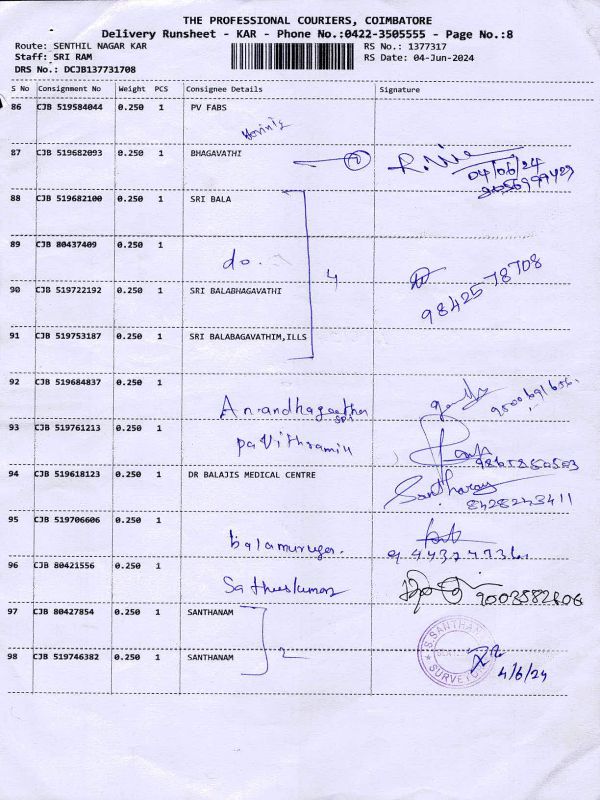 THE PROFESSIONAL COURIERS, COIMBATORE
Delivery Runsheet - KAR - Phone No.:0422-3505555 - Page No.:8
Route: SENTHIL NAGAR KAR
RS No.: 1377317
Staff: SRI RAM
RS Date: 04-Jun-2024
DRS No.: DCJB137731708
S No Consignment No Weight PCS Consignee Details Signature
86 CJB 519584044 0.250 1 PV FABS
87 CJB 519682093 0.250 1 BHAGAVATHI
04/06/24
88 CJB 519682100 0.250 1 SRI BALA
89 CJB 80437409 0.250 1
do. 4
9842578708
90 CJB 519722192 0.250 1 SRI BALABHAGAVATHI
91 CJB 519753187 0.250 1 SRI BALABAGAVATHIM,ILLS
92 CJB 519684837 0.250 1
Anandhageetha
93 CJB 519761213 0.250 1
pavithramill
94 CJB 519618123 0.250 1 DR BALAJIS MEDICAL CENTRE
8428243411
95 CJB 519706606 0.250 1
balamurugan.
96 CJB 80421556 0.250 1
Satheeskumar
9003582606
97 CJB 80427854 0.250 1 SANTHANAM
2
98 CJB 519746382 0.250 1 SANTHANAM
S.SANTHANAM
SURVEYOR
4/6/24